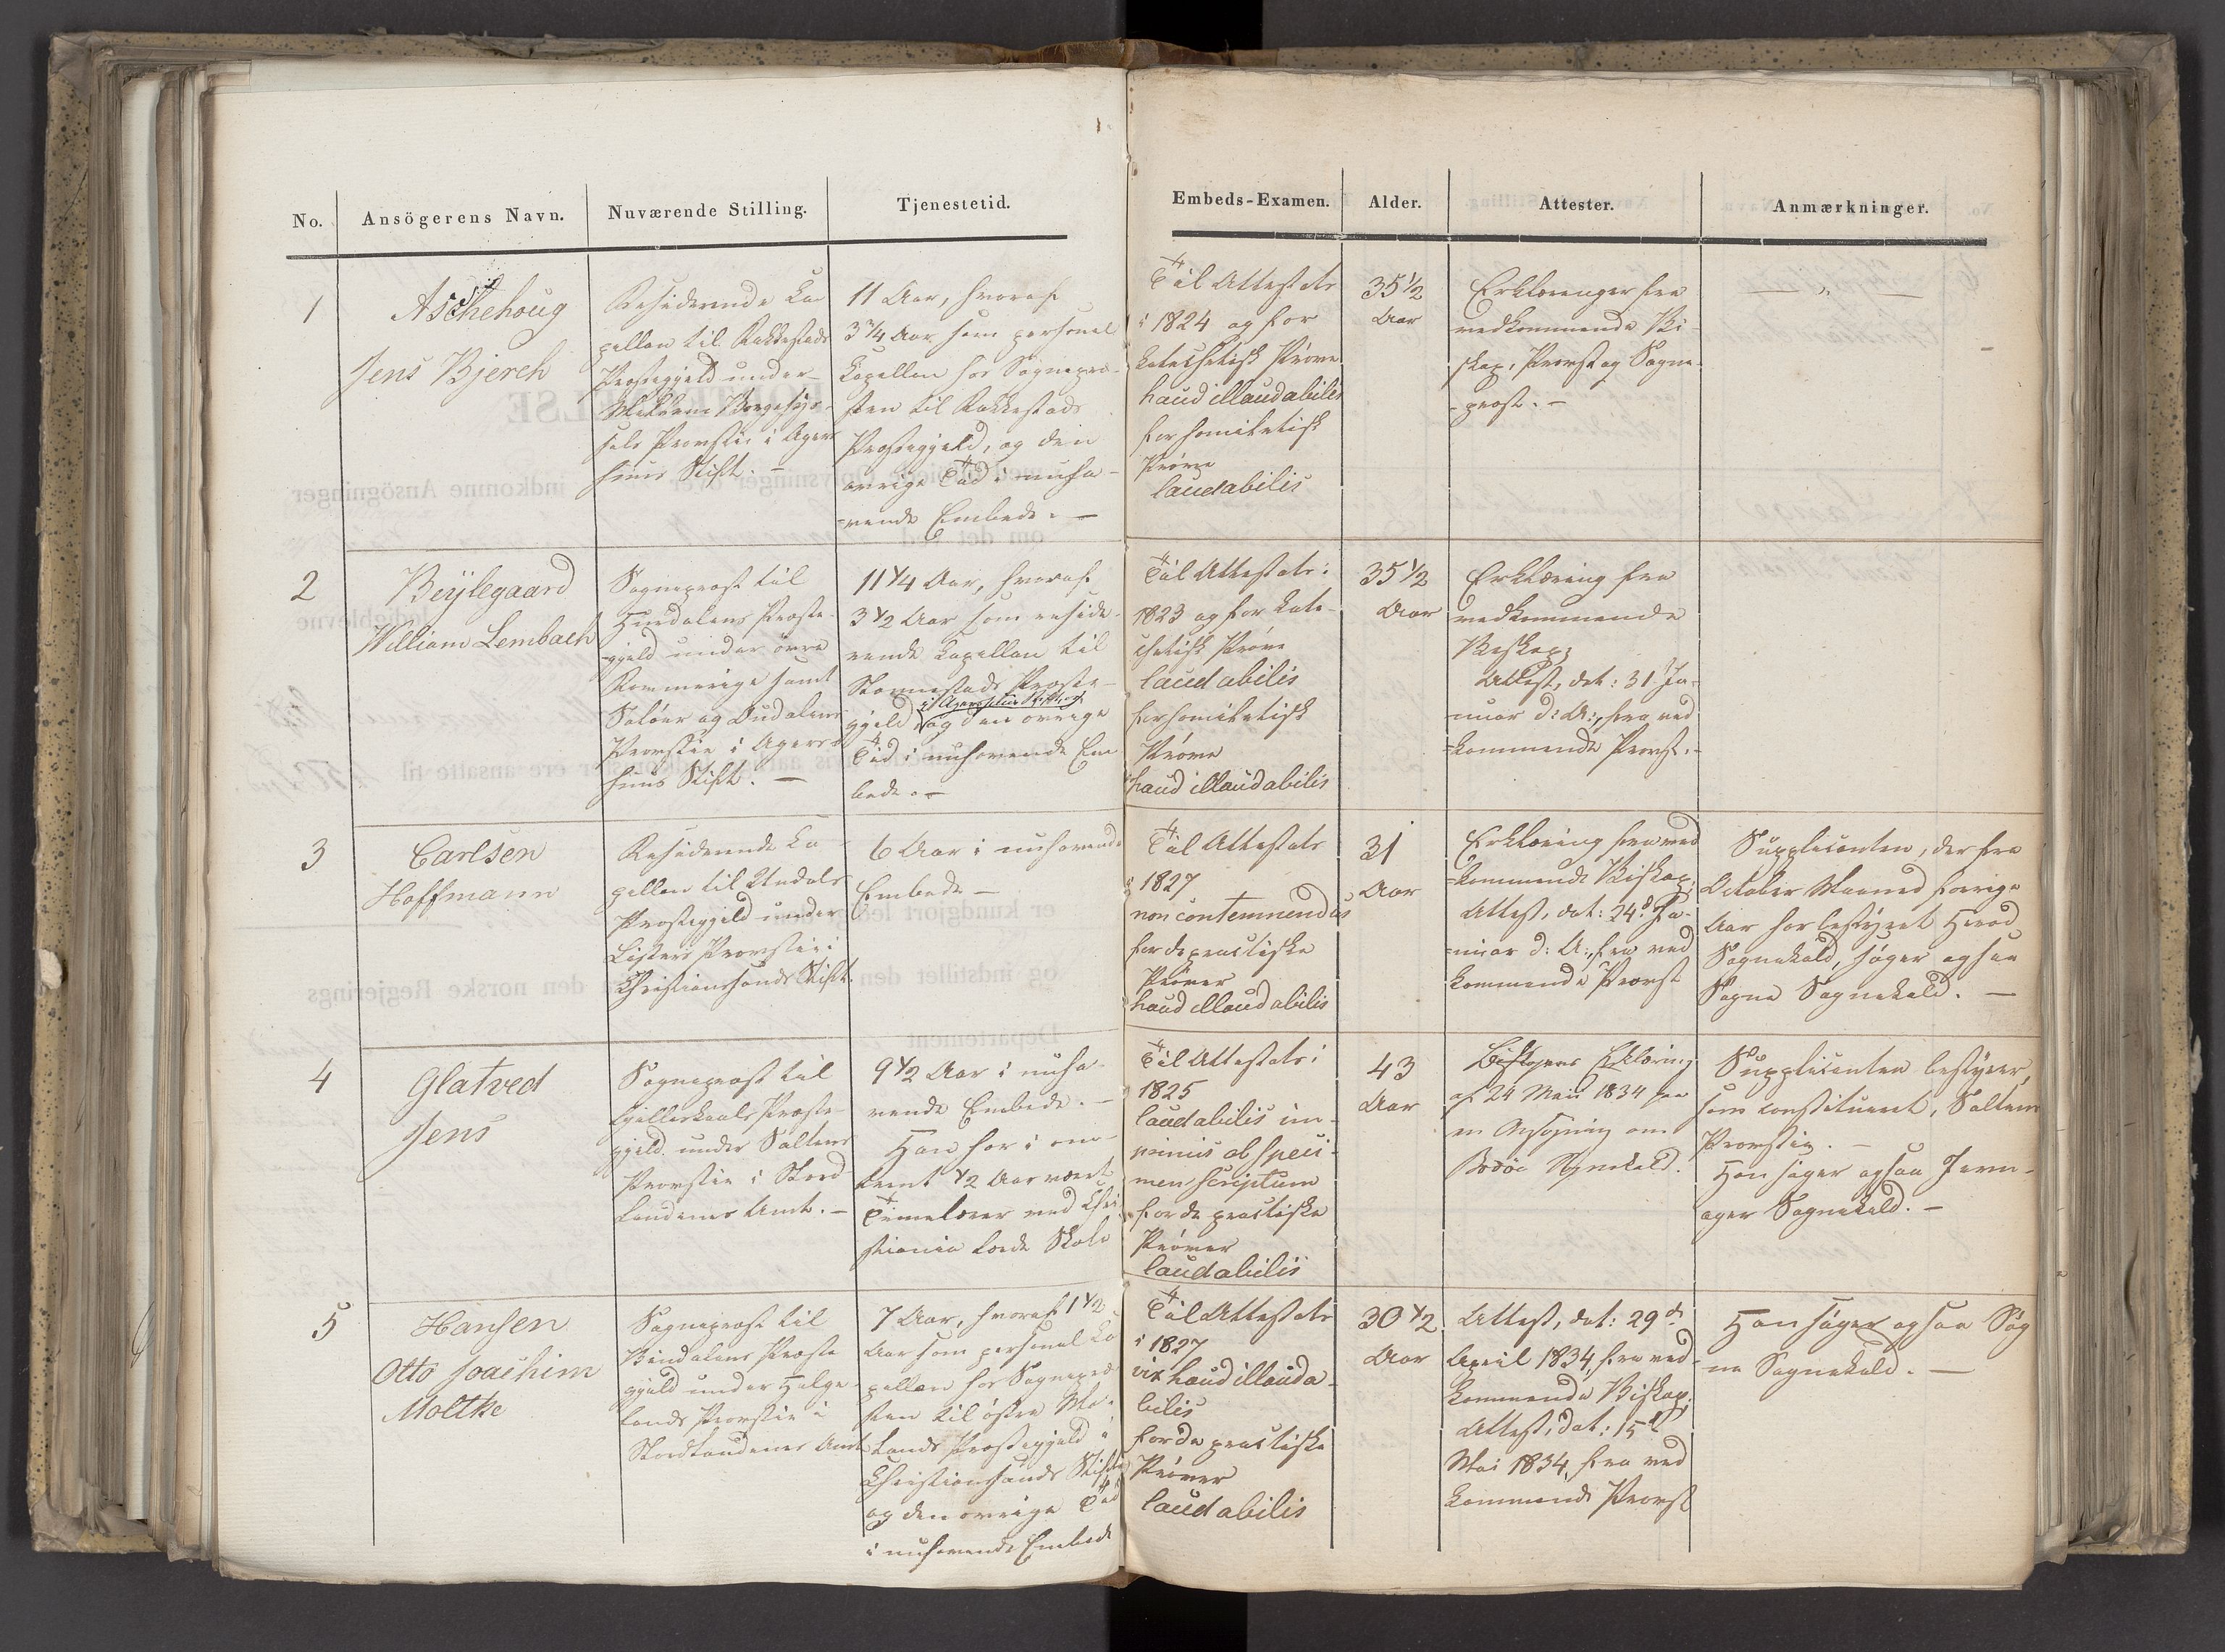 No.
Ansögerens Navn.
Nuværende Stilling.
Tjenestetid.
Embeds-Examen.
Alder.
Attester.
Anmærkninger.
1
Aschehoug
Jens Bjerch
Residerende Ca-
pellan til Rakkestads
Præstegjeld under
Borgesys-
sels Provstie i Agers-
huus Stift. –
11 Aar, hvoraf
3¾ Aar som personel
Capellan hos Sognepræ-
sten til Rakkestads
Præstegjeld, og den
øvrige Tid i nuhæ-
-rende Embede. –
Til Attestats
i 1824 og for
katechetisk Prøve
haud illaudabilis
for homiletisk
Prøve
laudabilis
35½
Aar
Erklæringer fra
vedkommende Bi-
skop, Provst og Sogne-
-præst. –
— " —
2
Beylegaard
William Lembach
Sognepræst til
Hurdalens Præste-
-gjeld under øvre
Rommerige samt
Soløer og Oudalens
Provstie i Agers-
huus Stift. –
11¼ Aar, hvoraf
3½ Aar som reside-
rende Capellan til
Præste-
gjeld i Agershuus Stift, og
den øvrige
Tid i nuhavende Em
bede. –
Til Attestats:
1823 og for kate-
chetisk Prøve
laudabilis
for homiletisk
Prøve
haud illaudabilis
35½
Aar
Erklæring fra
vedkommende
Biskop;
Attest, dat: 31 Ja-
nuar d: A:, fra ved
-kommende Provst. –
3
Carlsen
Hoffmann
Residerende Ca-
pellan til Undals
Præstegjeld under
Listers Provstie i
Christianssands Stift.
6 Aar i nuhavende
Embede –
Til Attestats
i 1827
non contemnendus
for de practiske
Prøver
haud illaudabilis
31
Aar
Erklæring fra ved
-kommende Biskop;
Attest, dat: 24d Ja-
-nuar d: A:, fra ved
kommende Provst
Supplicanten, der fra
October Maaned forrige
Aar har bestyret
Sognekald, søger ogsaa
Sogne Sognekald. –
4
Glatved
Jens
Sognepræst til
Gilleskaals Præste-
gjeld under Saltens
Provstie i Nord
landenes Amt. –
9½ Aar i nuha-
vende Embede. –
Han har i om-
trent ½ Aar været
Timelærer ved Chri-
stiania lærde Skole
Til Attestats i
1825
laudabilis im-
primis ob speci-
men scriptum
for de practiske
Prøver
laudabilis
43
Aar
Biskopens Erklæring
af 24 Mai 1834 paa
en Ansøgning om
Bodøe Sognekald.
Supplicanten bestyrer,
som constitueret, Saltens
Provstie. –
Han søger ogsaa Jern-
ager Sognekald. –
5
Hansen
Otto Joachim
Moltke
Sognepræst til
Bindalens Præste
gjeld under Helge-
lands Provstie i
Nordlandenes Amt
7 Aar, hvoraf 1½
Aar som personel Ca
pellan hos Sognepræ
sten til østre Mo-
lands Præstegjeld i
Christianssands Stift
og den øvrige Tid
i nuhavende Embede
Til Attestats
i 1827
vix haud illauda-
bilis
for de practiske
Prøver
laudabilis
30½
Aar
Attest, dat: 29d
April 1834, fra ved-
kommende Biskop;
Attest, dat: 15d
Mai 1834, fra ved
kommende Provst
Han søger ogsaa Sog
ne Sognekald. –